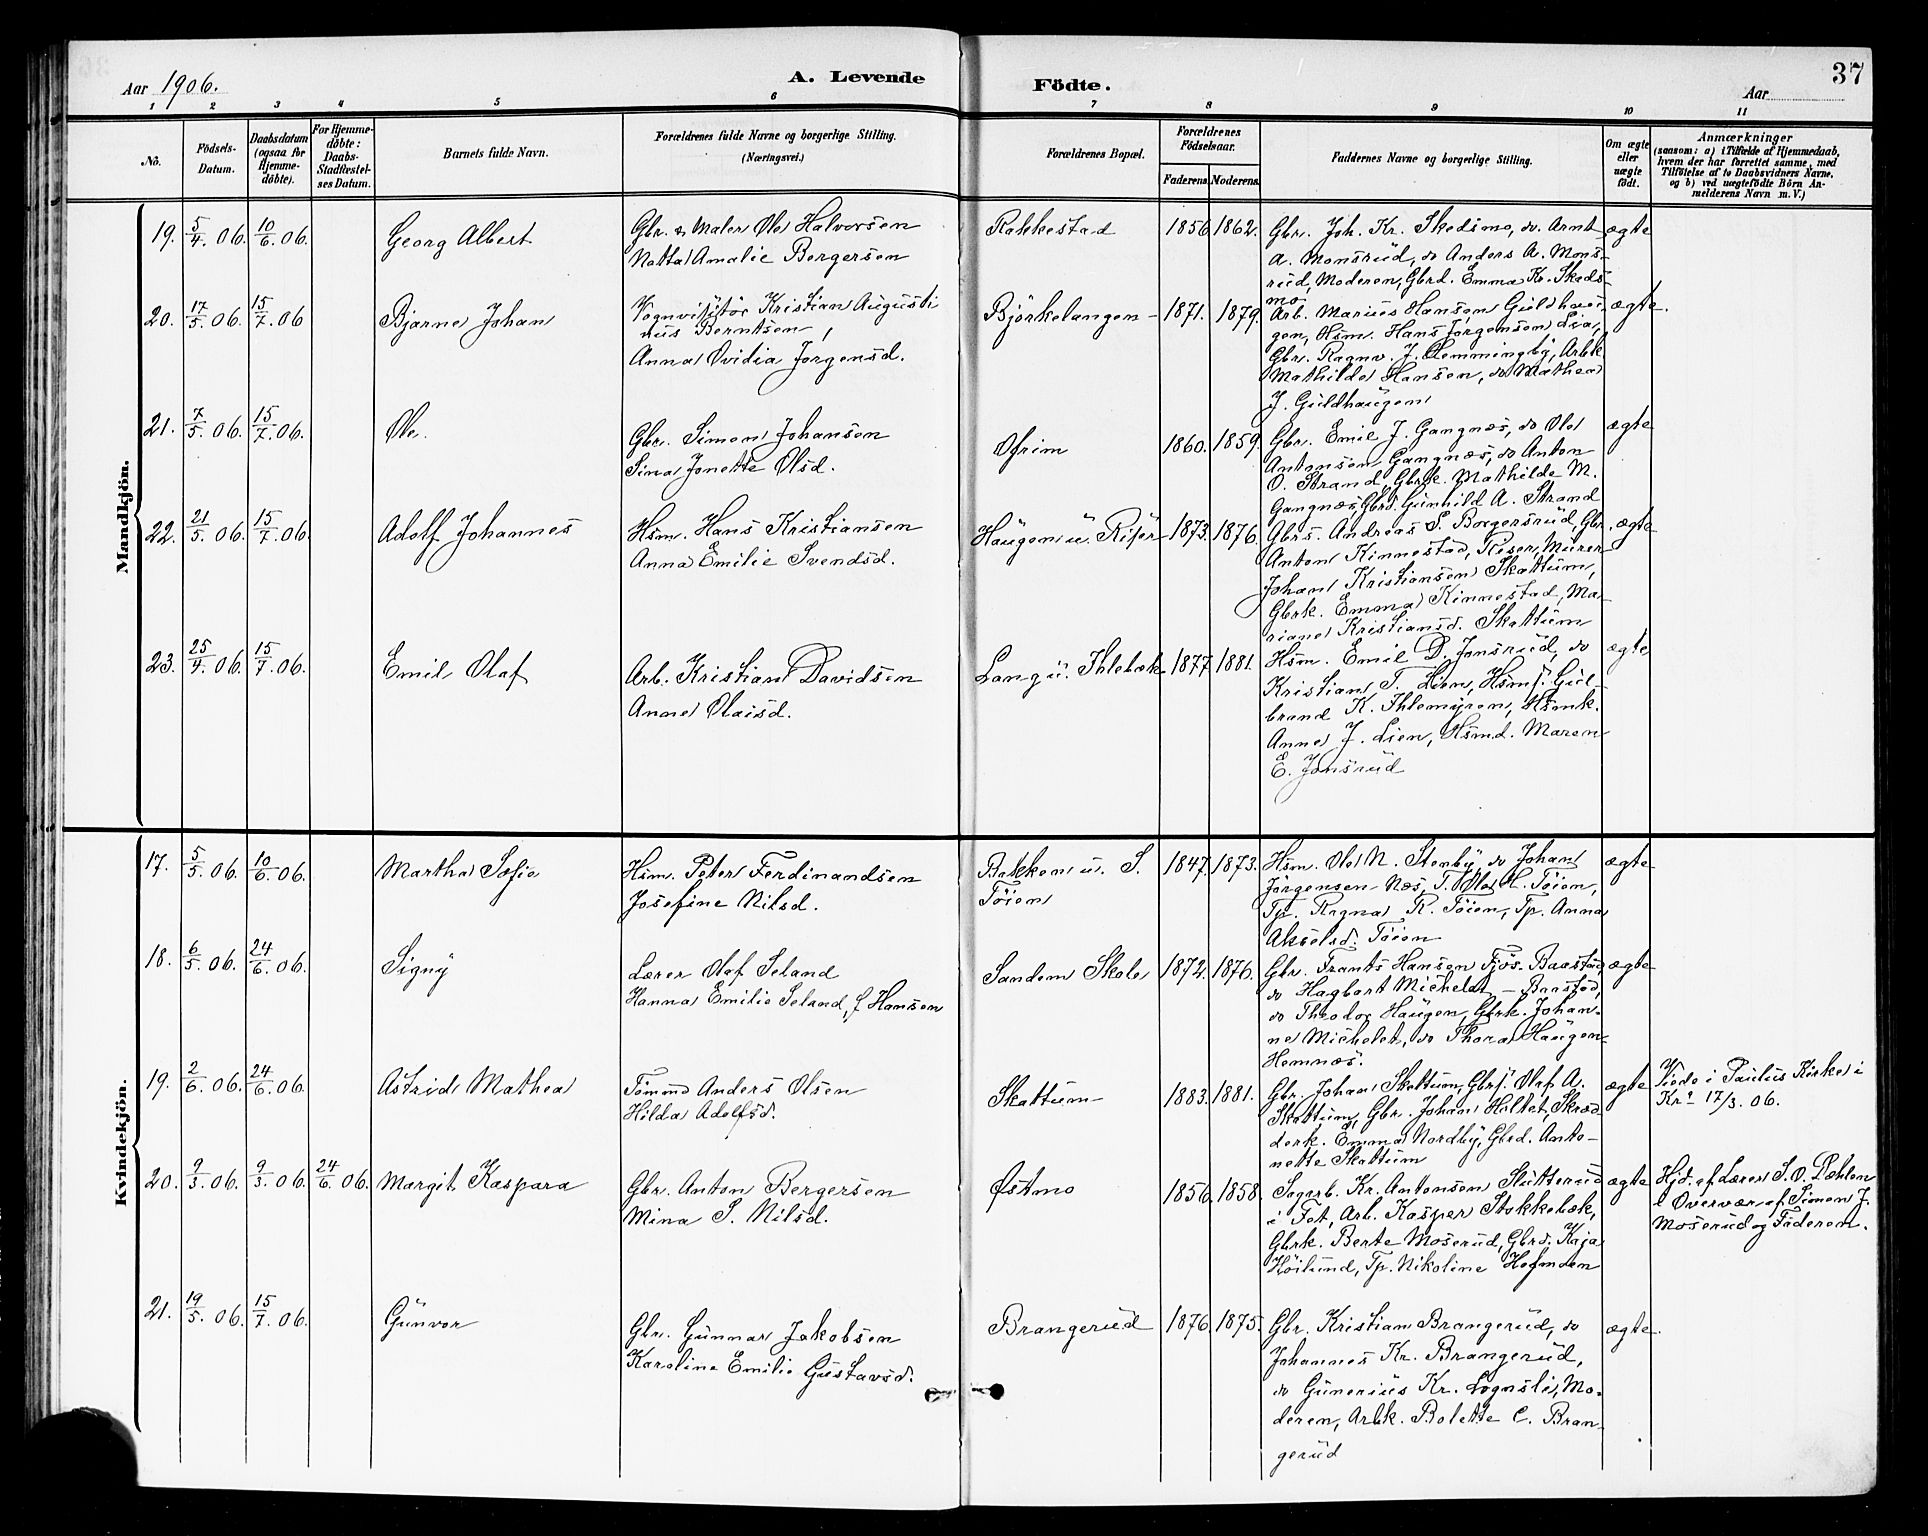 37
Aar 1906.
A. Levende
Födte.
Aar
1 2 3 4 5 6 7 8 9 10 11
No.
Födsels-
Datum.
Daabsdatum
(ogsaa for
Hjemme-
döbte).
For Hjemme-
döbte:
Daabs-
Stadfæstel-
ses Datum.
Barnets fulde Navn.
Forældrenes fulde Navne og borgerlige Stilling.
(Næringsvei.)
Forældrenes Bopæl.
Forældrenes
Födselsaar.
Faderens. Moderens.
Faddernes Navne og borgerlige Stilling.
Om ægte
eller
uægte
födt.
Anmærkninger
(saasom: a) i Tilfælde af Hjemmedaab,
hvem der har forrettet samme, med
Tilföielse af to Daabsvidners Navne,
og b) ved uægtefödte Börn An-
melderens Navn m. V.)
Mandkjön.
19. 5/4. 06. 10/6. 06.
Georg Albert
Gbr. & Maler Ole Halvorsen
Netta Amalie Borgersen
Rakkestad
1856 1862.
Gbr. Joh. Kr. Skedsmo, do Arnt
A. Monsrud, do Anders A. Mons-
rud, Moderen, Gbrd. Emma Kr. Skeds-
mo
ægte
20. 17/5. 06. 15/7. 06
Bjarne Johan
Vognvisitör Kristian Augusti
nus Berntsen,
Anna Ovidia Jorgensd.
Björkelangen
1871. 1879.
Arb. Marius Hansen Guldhau-
gen, Hsm. Hans Jorgensen Lia,
Gbr. Ragnv. J. Clemmingby, Arbk
Mathilde Hansen, do Mathea
J. Guldhaugen
ægte.
21. 7/5. 06. 15/7. 06.
Ole.
Gbr. Simen Johansen
Sina Jonette Olsd.
Ofrim
1860. 1859.
Gbr. Emil J. Gangnæs, do Ole
Antonsen Gangnæs, do Anton
O. Strand, Gbrk. Mathilde M.
Gangnæs, Gbrd. Gunhild A. Strand
ægte
22. 21/5. 06. 15/7. 06.
Adolf Johannes
Hsm. Hans Kristiansen
Anna Emilie Svendsd.
Haugen u. Riser
1873. 1876.
Gbrs. Andreas S. Borgersrud, Gbr.
Anton Kinnestad, Riser, Murer
Johan Kristiansen Skattum,
Gbrk. Emma Kinnestad, Ma-
riane Kristiansd. Skattum
ægte
23. 25/4. 06. 15/7. 06.
Emil Olaf
Arb. Kristian Davidsen
Anne Olaisd.
Lang u. Ihlebæk
1877 1881.
Hsm. Emil D. Jonsrud, do
Kristian T. Lien, Hsmf. Gul-
brand K. Ihlemyren, Hsmk.
Anne J. Lien, Hsmd. Maren
E. Jonsrud
ægte
Kvindekjön.
17. 5/5. 06. 10/6. 06.
Martha Sofie
Hsm. Peter Ferdinandsen
Josefine Nilsd.
Bakken u. S.
Töien
1847. 1873.
Hsm. Ole N. Stenby do Johan
Jörgensen Næs, T. Ole H. Töien,
Tp. Ragna K. Töien, Tp. Anna
Akselsd. Töien
ægte
18. 6/5. 06. 24/6. 06.
Signy
Lærer Olaf Seland
Hanna Emilie Seland, f. Hansen
Sandem Skole
1872. 1876.
Gbr. Frants Hansen Fjös-Baastad,
do Hagbart Michelet - Baastad,
do Theodor Haugen, Gbrk. Johan-
ne Michelet, do Thora Haugen-
Hemnæs.
ægte
19. 2/6. 06. 24/6. 06.
Astrid Mathea
Tömmd Anders Olsen
Hilda Adolfsd.
Skattum
1883. 1881.
Gbr. Johan Skattum, Gbrf. Olaf A.
Skattum, Gbr. Johan Holtet, Skræd-
derk. Emma Nordby, Gbrd. Anto-
nette Skattum
ægte
Viede i Paulus Kirke i
Kra 17/3. 06.
20. 9/3. 06. 9/3. 06. 24/6. 06.
Margit Kaspara
Gbr. Anton Bergersen
Mina S. Nilsd.
Østmo
1856. 1858.
Sagarb. Kr. Antonsen Slutterud
i Fet, Arb. Kasper Stokkebæk,
Gbrk. Berte Moserud, Gbrd. Kaja
Höilund, Tp. Nikoline Hofmoen
ægte
Hjd. af Lærer S. O. Dæhlen
i Overvær af Simen J.
Moserud og Faderen.
21. 19/5. 06. 15/7. 06.
Gunvor
Gbr. Gunnar Jakobsen
Karoline Emilie Gustavsd.
Brangerud
1876. 1875.
Gbr. Kristian Brangerud, do
Johannes Kr. Brangerud,
do Gunerius Kr. Lognsli, Mo-
deren, Arbk. Bolette C. Bran-
gerud
ægte.